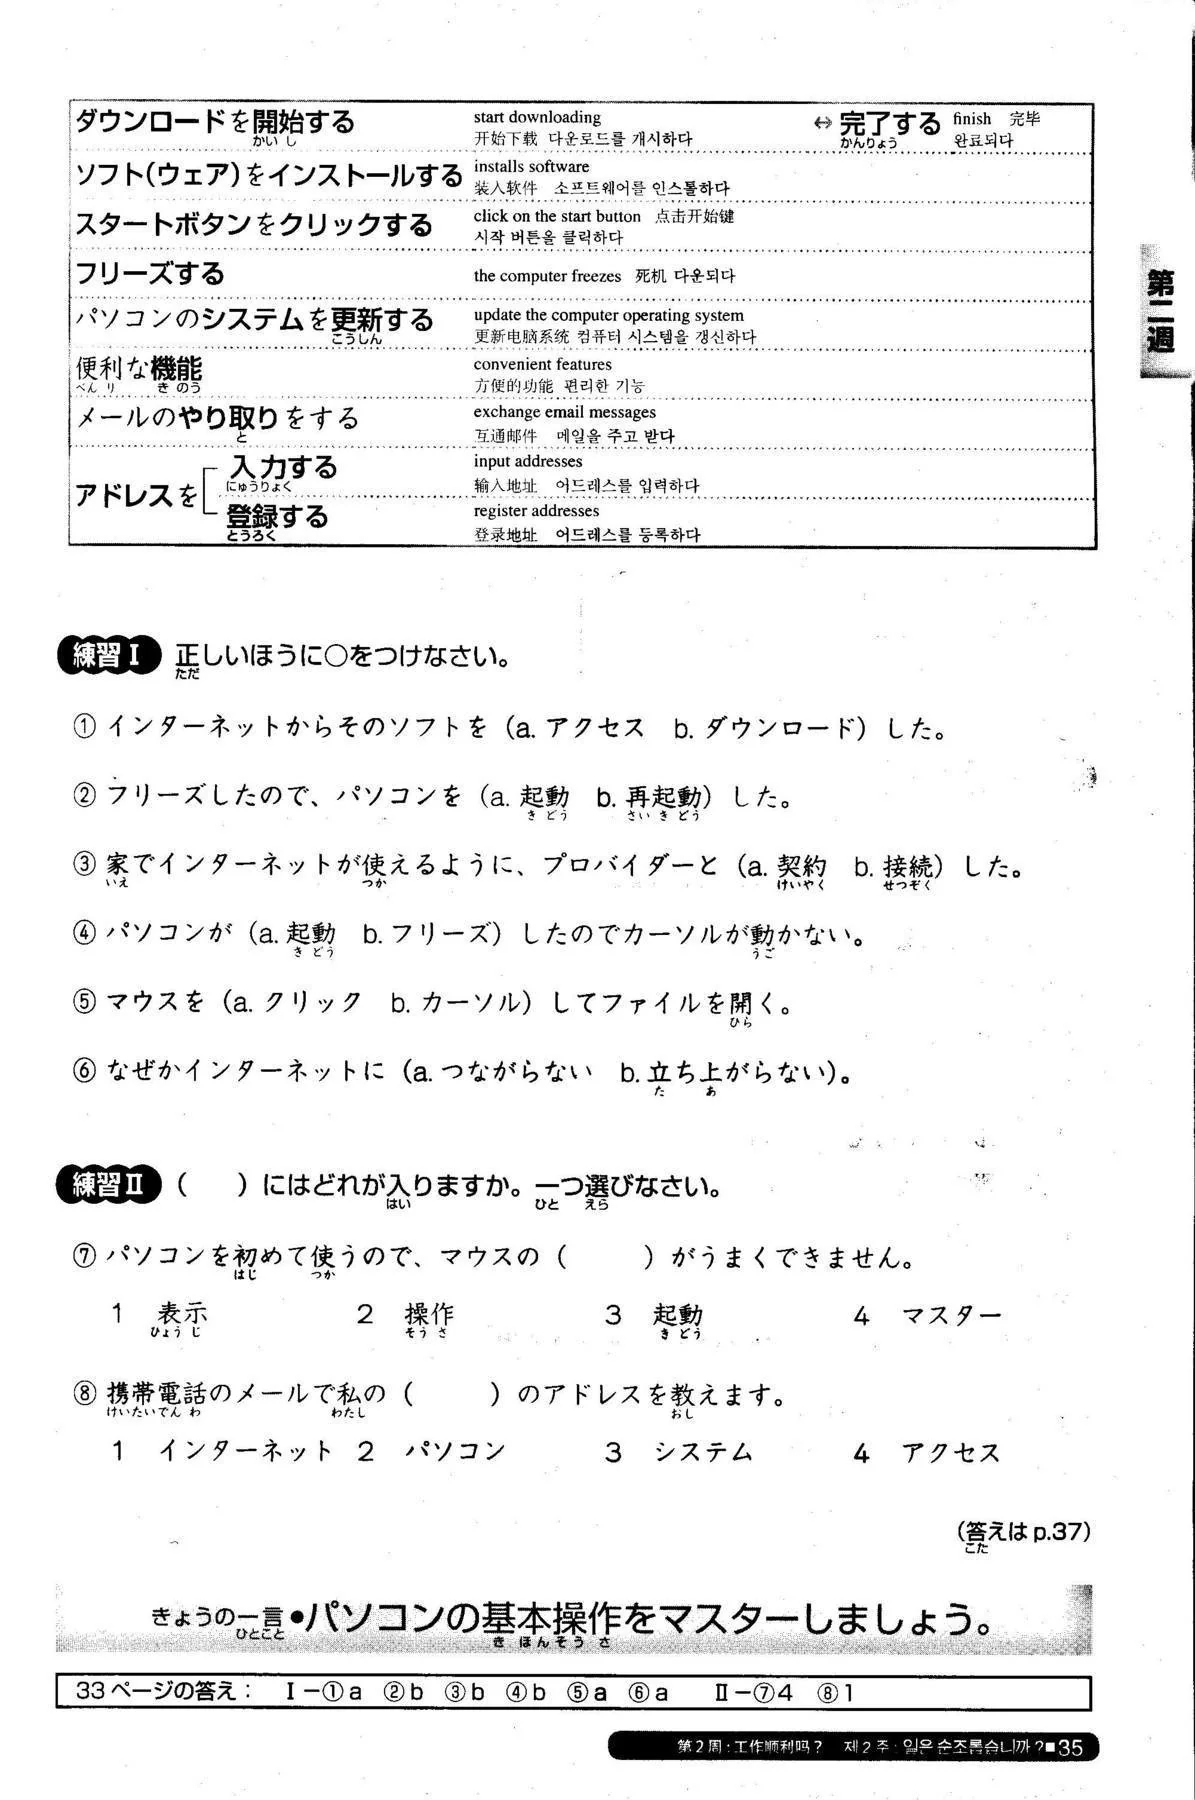 ダウンロードを開始する start downloading ⇔ 完了する finish 完毕
かいし 开始下载 다운로드를 개시하다 かんりょう 완료되다
ソフト(ウェア)をインストールする installs software
装入软件 소프트웨어를 인스톨하다
スタートボタンをクリックする click on the start button 点击开始键
시작 버튼을 클릭하다
フリーズする the computer freezes 死机 다운되다
パソコンのシステムを更新する update the computer operating system
こうしん 更新电脑系统 컴퓨터 시스템을 갱신하다
便利な機能 convenient features
べんり きのう 方便的功能 편리한 기능
メールのやり取りをする exchange email messages
と 互通邮件 메일을 주고 받다
アドレスを 入力する input addresses
にゅうりょく 输入地址 어드레스를 입력하다
登録する register addresses
とうろく 登录地址 어드레스를 등록하다
第二週
練習Ⅰ 正しいほうに○をつけなさい。
ただ
① インターネットからそのソフトを（a. アクセス b. ダウンロード）した。
② フリーズしたので、パソコンを（a. 起動 b. 再起動）した。
きどう さいきどう
③ 家でインターネットが使えるように、プロバイダーと（a. 契約 b. 接続）した。
いえ つか けいやく せつぞく
④ パソコンが（a. 起動 b. フリーズ）したのでカーソルが動かない。
きどう うご
⑤ マウスを（a. クリック b. カーソル）してファイルを開く。
ひら
⑥ なぜかインターネットに（a. つながらない b. 立ち上がらない）。
た あ
練習Ⅱ （ ）にはどれが入りますか。一つ選びなさい。
はい ひと えら
⑦ パソコンを初めて使うので、マウスの（ ）がうまくできません。
はじ つか
1 表示 2 操作 3 起動 4 マスター
ひょうじ そうさ きどう
⑧ 携帯電話のメールで私の（ ）のアドレスを教えます。
けいたいでんわ わたし おし
1 インターネット 2 パソコン 3 システム 4 アクセス
（答えは p.37）
こた
きょうの一言●パソコンの基本操作をマスターしましょう。
ひとこと きほんそうさ
33ページの答え： Ⅰ－①a ②b ③b ④b ⑤a ⑥a Ⅱ－⑦4 ⑧1
第2周：工作顺利吗？ 제2주：일은 순조롭습니까？■35